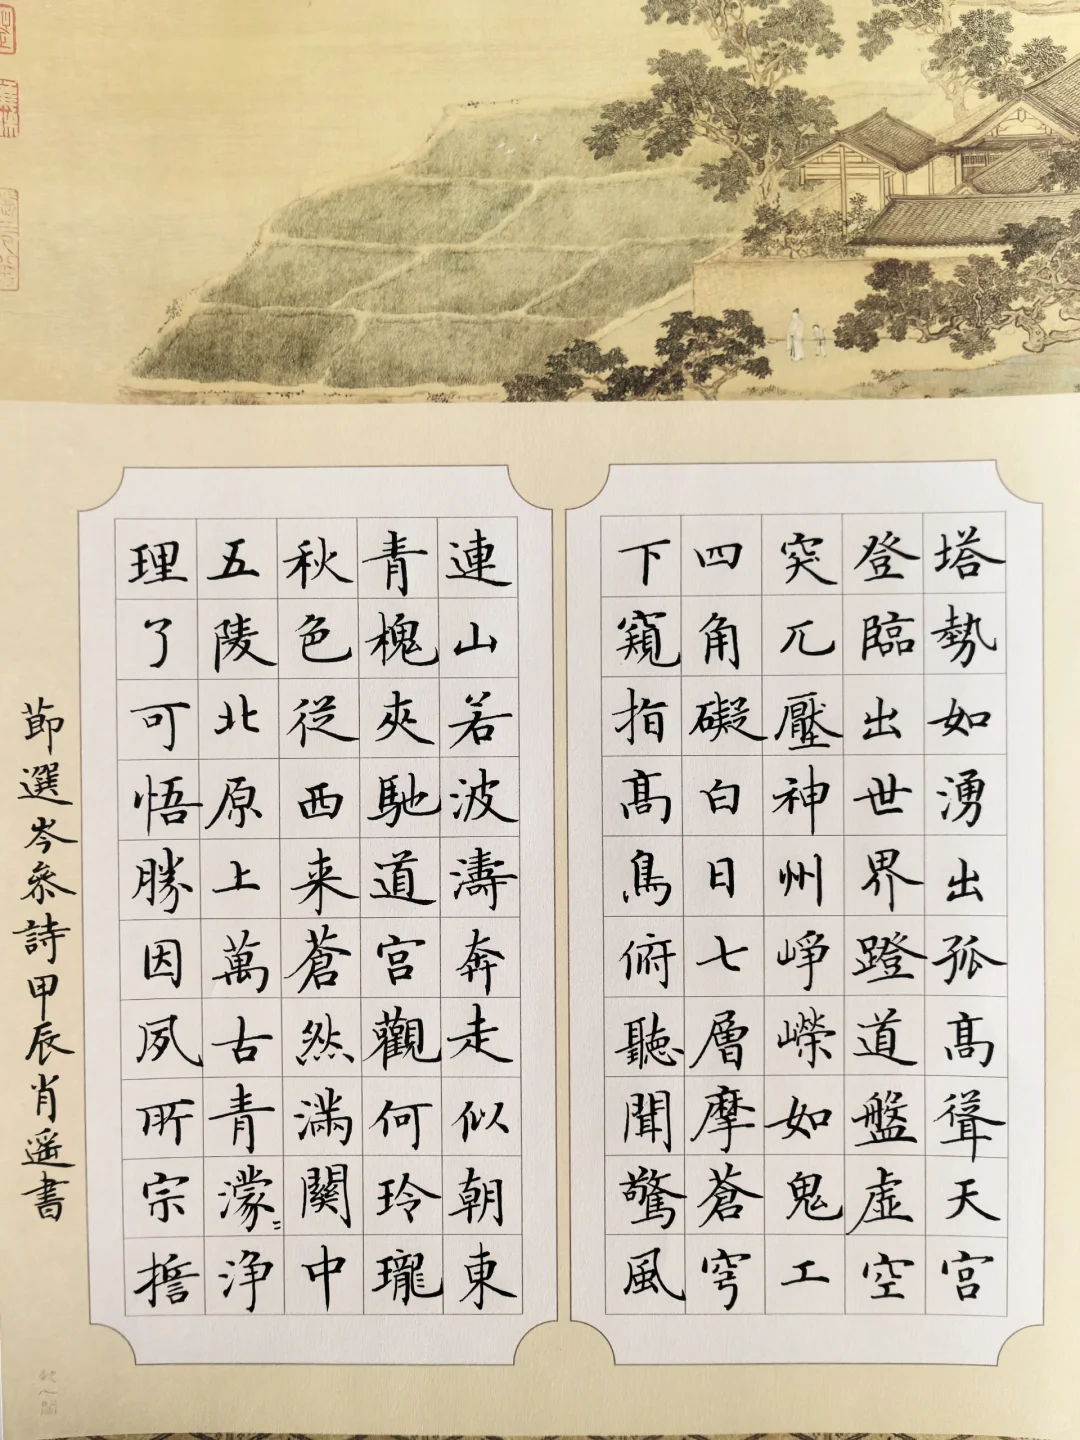 塔勢如湧出孤高聳天宮
登臨出世界蹬道盤虛空
突兀壓神州崢嶸如鬼工
四角礙白日七層摩蒼穹
下窺指高鳥俯聽聞驚風
連山若波濤奔走似朝東
青槐夾馳道宮觀何玲瓏
秋色從西来蒼然滿關中
五陵北原上萬古青濛〻淨
理了可悟勝因夙所宗誓
節選岑參詩甲辰肖遥書